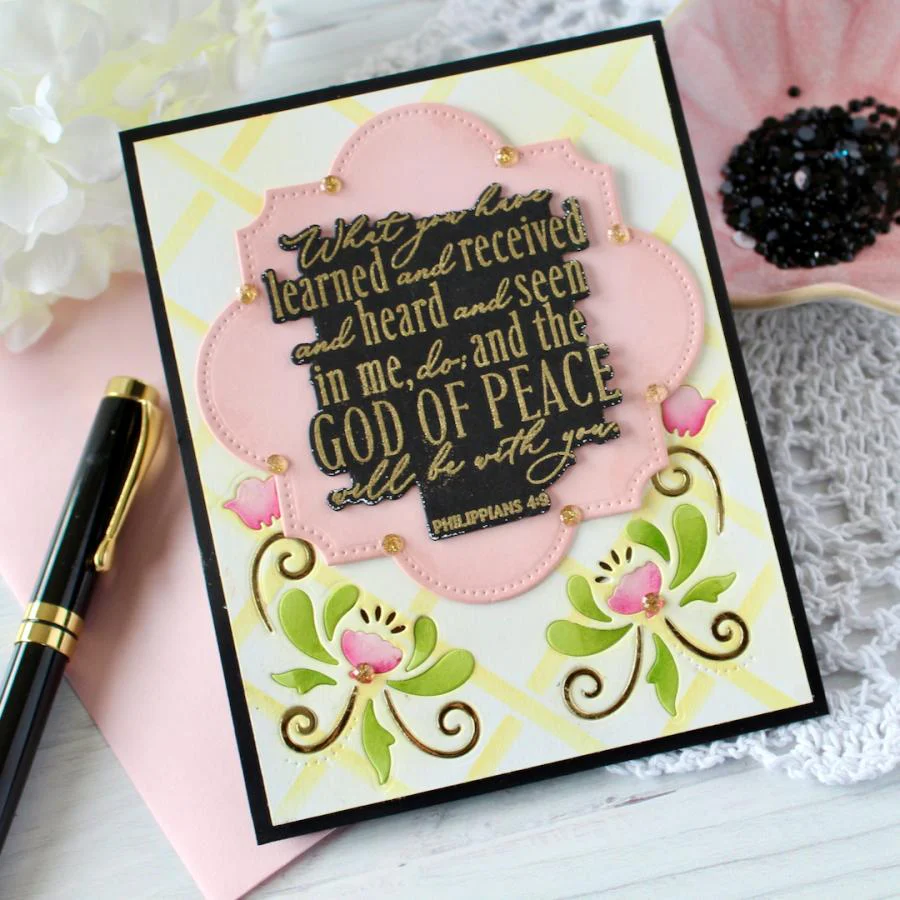 What you have
learned and received
and heard and seen
in me, do: and the
GOD OF PEACE
will be with you.
PHILIPPIANS 4:9